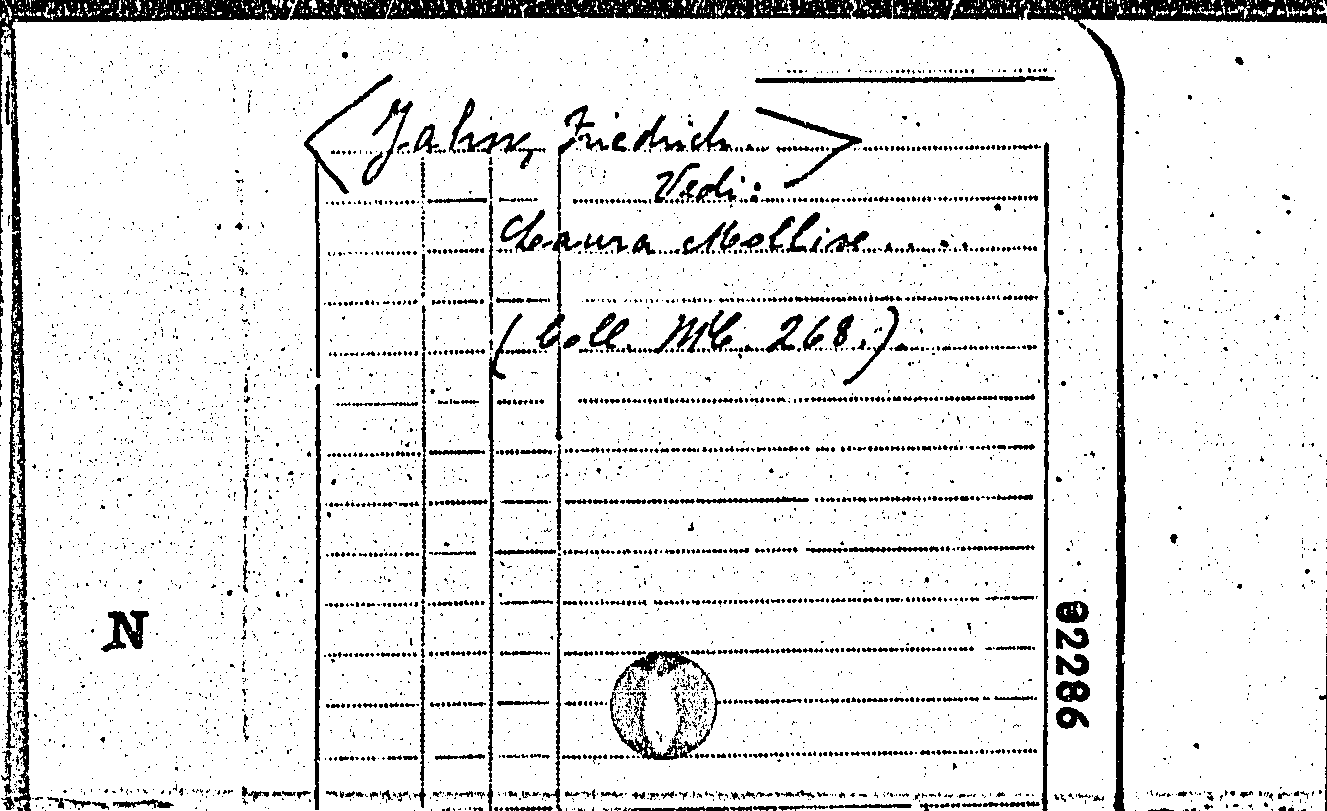 <Jahn, Friedrich.>
Vedi:
Laura Mollise . . . .
(Coll. MC. 268.).
N
02286